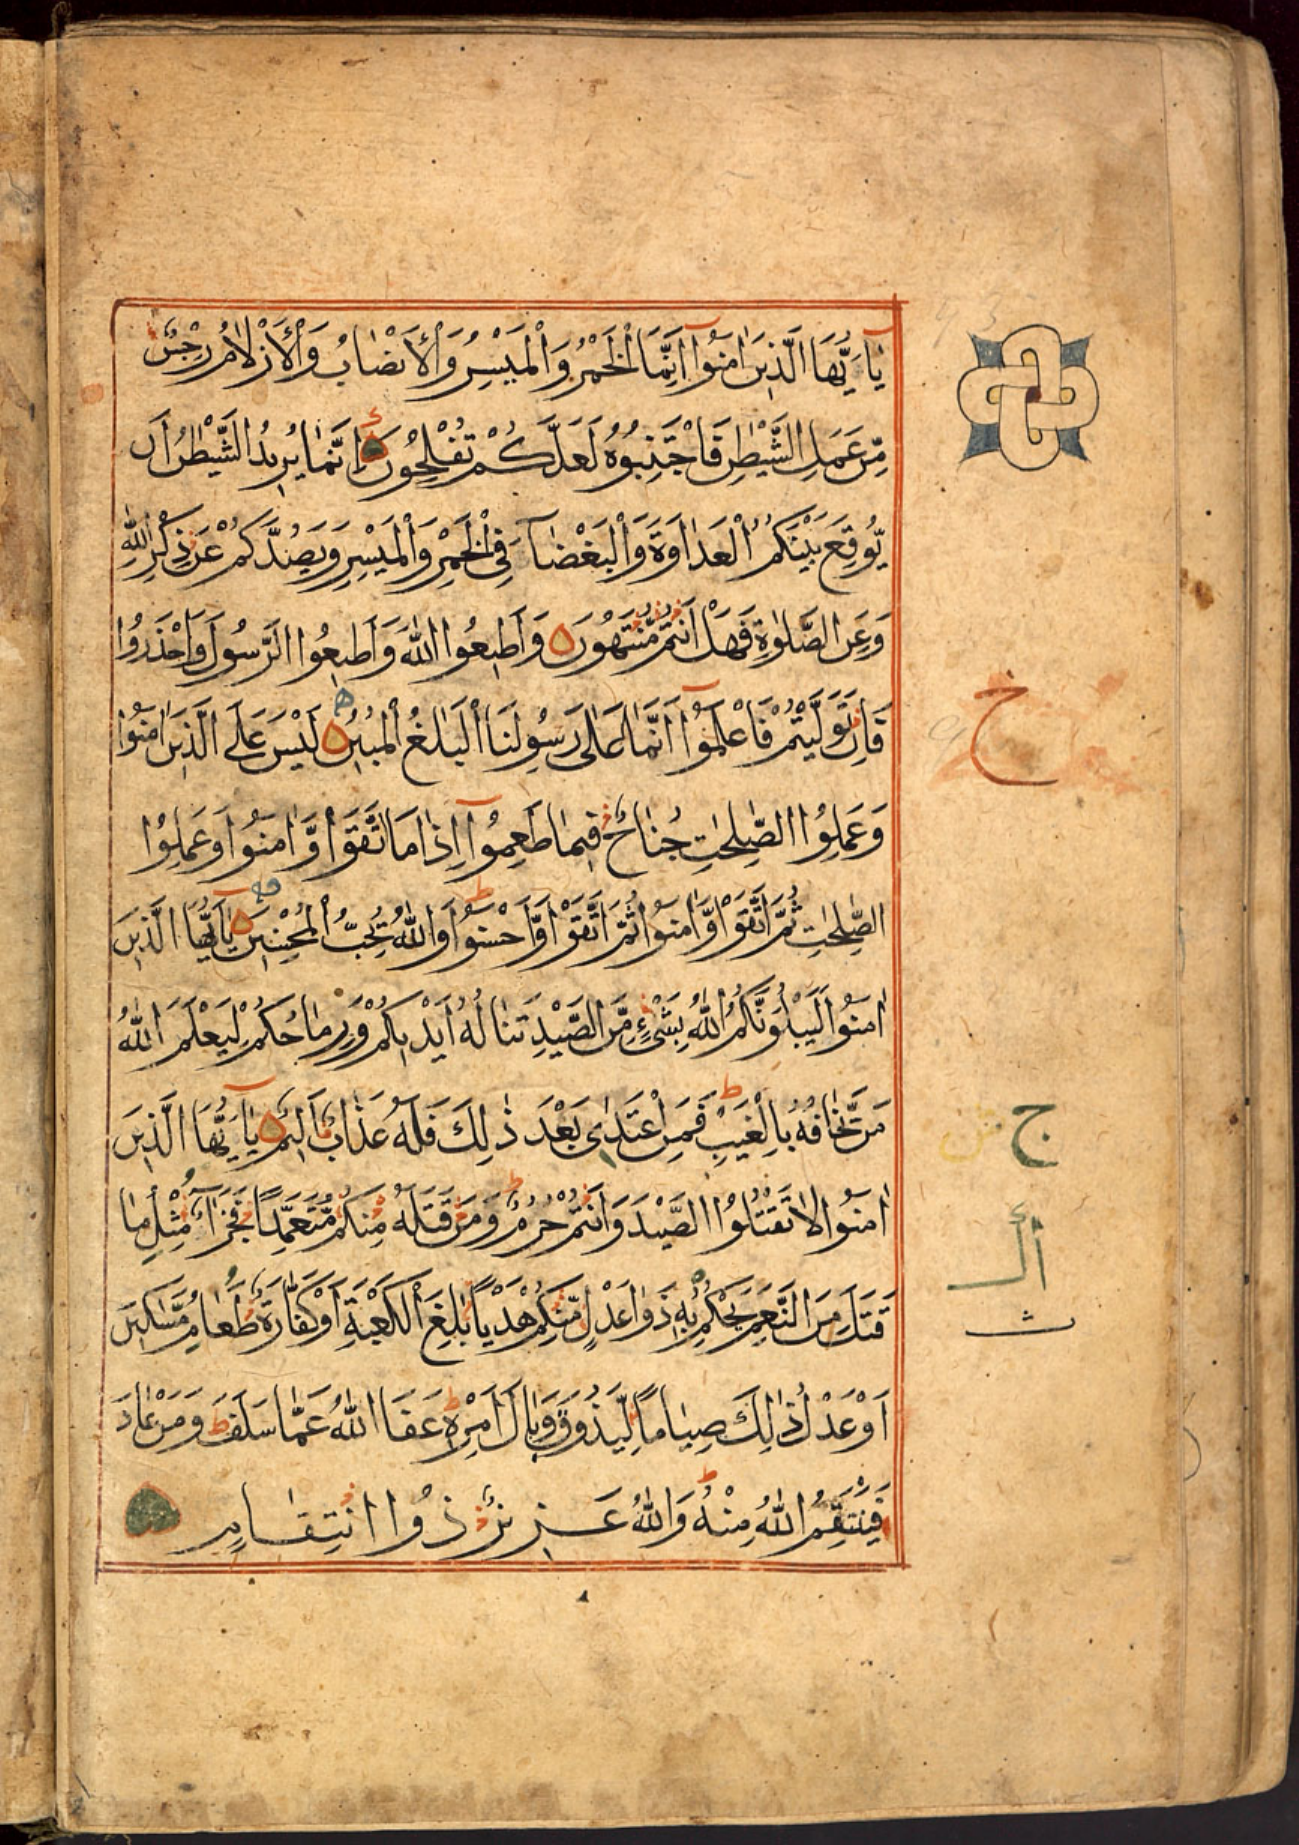 يٰٓاَيُّهَا الَّذِيْنَ اٰمَنُوْٓا اِنَّمَا الْخَمْرُ وَالْمَيْسِرُ وَالْاَنْصَابُ وَالْاَزْلَامُ رِجْسٌ
مِّنْ عَمَلِ الشَّيْطٰنِ فَاجْتَنِبُوْهُ لَعَلَّكُمْ تُفْلِحُوْنَ اِنَّمَا يُرِيْدُ الشَّيْطٰنُ اَنْ
يُّوْقِعَ بَيْنَكُمُ الْعَدَاوَةَ وَالْبَغْضَآءَ فِى الْخَمْرِ وَالْمَيْسِرِ وَيَصُدَّكُمْ عَنْ ذِكْرِ اللّٰهِ
وَعَنِ الصَّلٰوةِ فَهَلْ اَنْتُمْ مُّنْتَهُوْنَ وَاَطِيْعُوا اللّٰهَ وَاَطِيْعُوا الرَّسُوْلَ وَاحْذَرُوْا
فَاِنْ تَوَلَّيْتُمْ فَاعْلَمُوْٓا اَنَّمَا عَلٰى رَسُوْلِنَا الْبَلٰغُ الْمُبِيْنُ لَيْسَ عَلَى الَّذِيْنَ اٰمَنُوْا
وَعَمِلُوا الصّٰلِحٰتِ جُنَاحٌ فِيْمَا طَعِمُوْٓا اِذَا مَا اتَّقَوْا وَّاٰمَنُوْا وَعَمِلُوا
الصّٰلِحٰتِ ثُمَّ اتَّقَوْا وَّاٰمَنُوْا ثُمَّ اتَّقَوْا وَّاَحْسَنُوْا وَاللّٰهُ يُحِبُّ الْمُحْسِنِيْنَ يٰٓاَيُّهَا الَّذِيْنَ
اٰمَنُوْا لَيَبْلُوَنَّكُمُ اللّٰهُ بِشَىْءٍ مِّنَ الصَّيْدِ تَنَالُهٗ اَيْدِيْكُمْ وَرِمَاحُكُمْ لِيَعْلَمَ اللّٰهُ
مَنْ يَّخَافُهٗ بِالْغَيْبِ فَمَنِ اعْتَدٰى بَعْدَ ذٰلِكَ فَلَهٗ عَذَابٌ اَلِيْمٌ يٰٓاَيُّهَا الَّذِيْنَ
اٰمَنُوْا لَا تَقْتُلُوا الصَّيْدَ وَاَنْتُمْ حُرُمٌ وَمَنْ قَتَلَهٗ مِنْكُمْ مُّتَعَمِّدًا فَجَزَآءٌ مِّثْلُ مَا
قَتَلَ مِنَ النَّعَمِ يَحْكُمُ بِهٖ ذَوَا عَدْلٍ مِّنْكُمْ هَدْيًا بٰلِغَ الْكَعْبَةِ اَوْ كَفَّارَةٌ طَعَامُ مَسٰكِيْنَ
اَوْ عَدْلُ ذٰلِكَ صِيَامًا لِّيَذُوْقَ وَبَالَ اَمْرِهٖ عَفَا اللّٰهُ عَمَّا سَلَفَ وَمَنْ عَادَ
فَيَنْتَقِمُ اللّٰهُ مِنْهُ وَاللّٰهُ عَزِيْزٌ ذُو انْتِقَامٍ